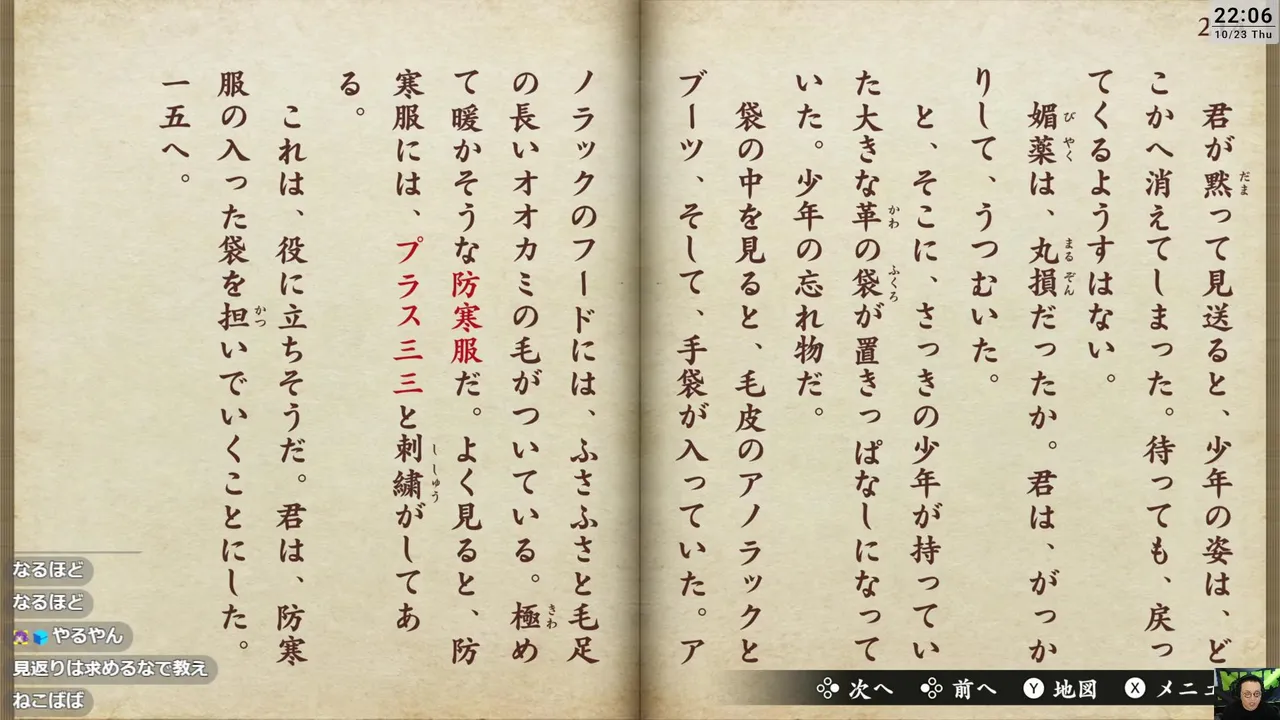 22:06
10/23 Thu
2
君が黙って見送ると、少年の姿は、ど
こかへ消えてしまった。待っても、戻っ
てくるようすはない。
媚薬は、丸損だったか。君は、がっか
りして、うつむいた。
と、そこに、さっきの少年が持ってい
た大きな革の袋が置きっぱなしになって
いた。少年の忘れ物だ。
袋の中を見ると、毛皮のアノラックと
ブーツ、そして、手袋が入っていた。ア
ノラックのフードには、ふさふさと毛足
の長いオオカミの毛がついている。極め
て暖かそうな防寒服だ。よく見ると、防
寒服には、プラス三三と刺繍がしてあ
る。
これは、役に立ちそうだ。君は、防寒
服の入った袋を担いでいくことにした。
一五へ。
なるほど
なるほど
やるやん
見返りは求めるなで教え
ねこばば
次へ
前へ
Y 地図
X メニュ